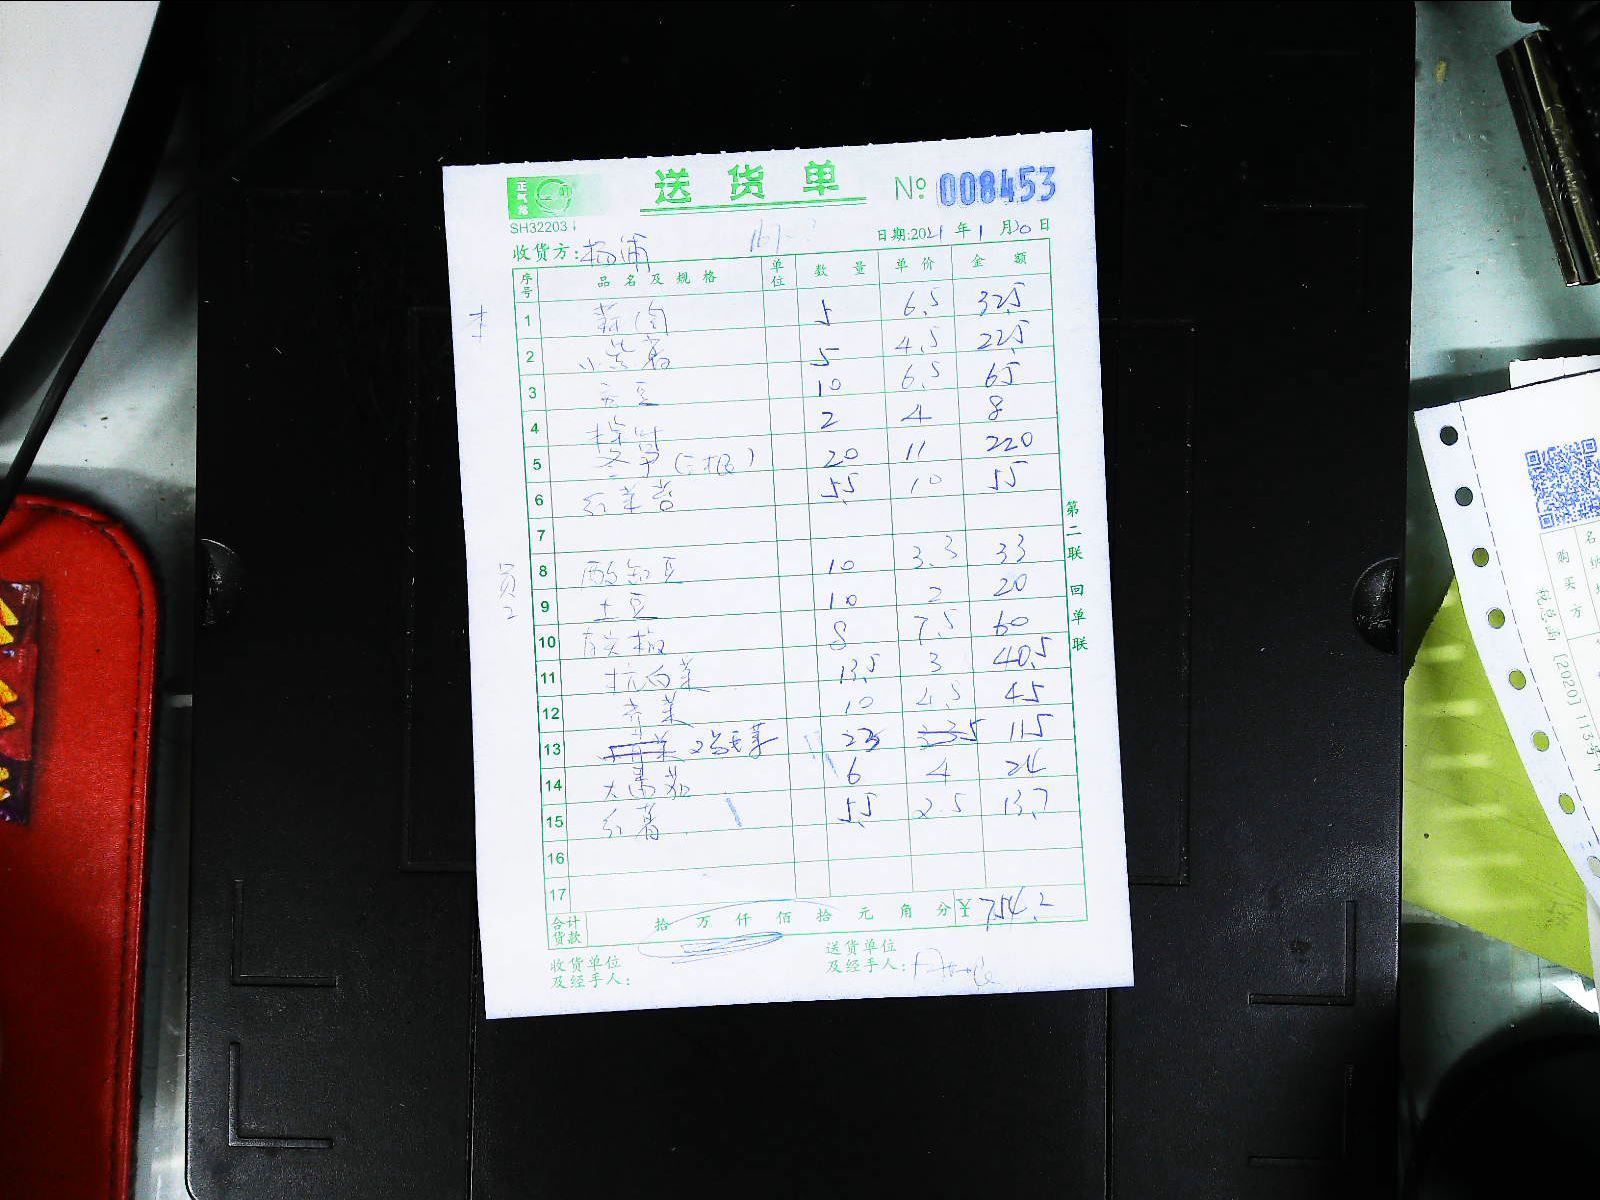 送货单 № 008453
SH32203
收货方: 杨浦 日期:2021年1月20日
序号 品名及规格 单位 数量 单价 金额
1 蒜肉 5 6.5 32.5
2 小黄葱 5 4.5 22.5
3 豆 10 6.5 65
4 2 4 8
5 冬笋 20 11 220
6 红菜苔 5.5 10 55
7
8 酸缸豆 10 3.3 33
9 土豆 10 2 20
10 椒 8 7.5 60
11 杭白菜 13.5 3 40.5
12 芹菜 10 4.5 45
13 23 5 115
14 大番茄 6 4 24
15 红薯 5.5 2.5 13.7
16
17
员工
合计货款 拾 万 仟 佰 拾 元 角 分 ¥ 754.2
收货单位及经手人:
送货单位及经手人:
第二联 回单联
购买方
税总函[2020]113号